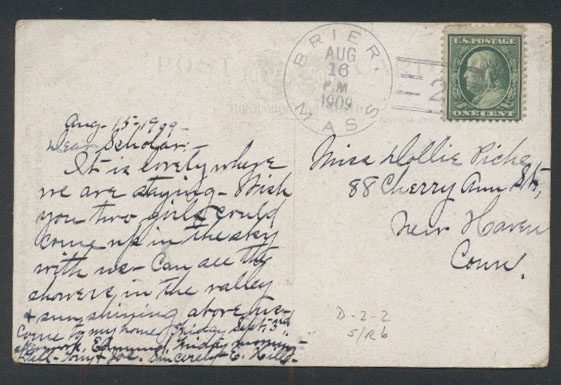 BRIER.
AUG
16
P.M.
1909
MASS
2
U.S. POSTAGE
ONE CENT
Aug-15-1909-
Dear Scholar:
It is lovely where
we are staying- Wish
you two girls could
come up in the sky
with us- Can see the
showers in the valley
& sun shining above us-
Come to my home Friday Sept. 3rd
Edmund, Friday
Tell Tony & Joe. Sincerely E. Hill-
Miss Dollie Piche
88 Cherry Ann St,
New Haven
Conn.
D-2-2
S/R6